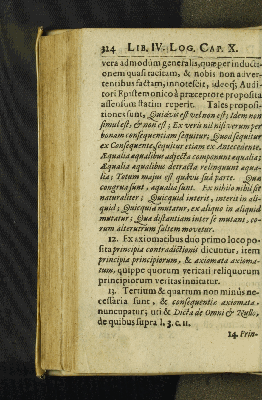 324 LIB. IV. LOG. CAP. X.
vera admodum generalis, quæ per inducti-
onem quasi tacitam, & nobis non adver-
tentibus factam, innotescit, ideoq; Audi-
tori Epistemonico à præceptore proposita
assensum statim reperit. Tales proposi-
tiones sunt, Quidvis est vel non est; Idem non
simul est, & non est; Ex veris nil nisi verum per
bonam consequentiam sequitur; Quod sequitur
ex Consequente, sequitur etiam ex Antecedente.
Æqualia æqualibus adjecta componunt æqualia;
Æqualia æqualibus detracta relinquunt æqua-
lia; Totum majus est quâvis suâ parte. Quæ
congrua sunt, æqualia sunt. Ex nihilo nihil fit
naturaliter; Quicquid interit, interit in ali-
quid; Quicquid mutatur, ex aliquo in aliquid
mutatur; Quæ distantiam inter se mutant, eo-
rum alterutrum saltem movetur.
12. Ex axiomatibus duo primo loco po-
sita principia contradictionis dicuntur, item
principia principiorum, & axiomata axioma-
tum, quippe quorum veritati reliquorum
principiorum veritas innitatur.
13. Tertium & quartum non minùs ne-
cessaria sunt, & consequentiæ axiomata
nuncupatur; uti & Dicta de Omni & Nullo,
de quibus supra l. 3. c. 11.
14. Prin-